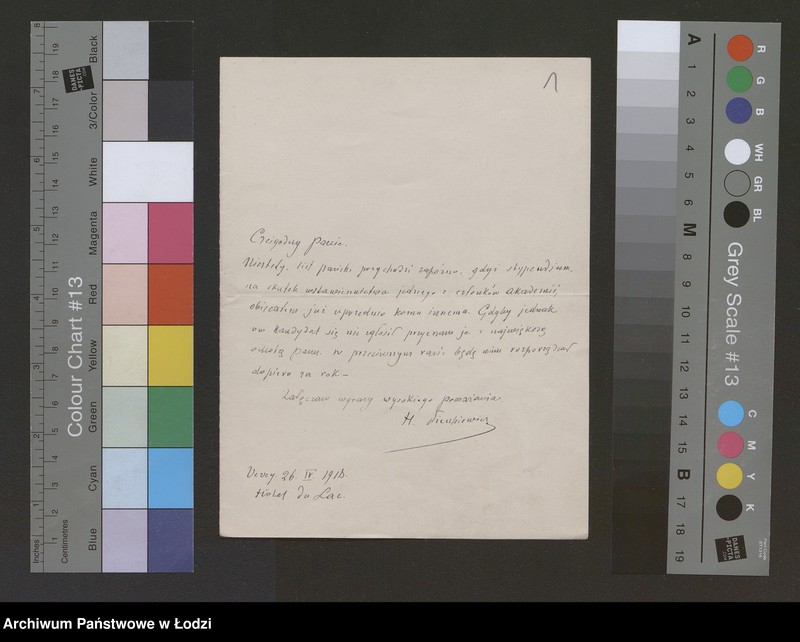 1
Czcigodny Panie.
Niestety, list pański przychodzi zapóźno, gdyż stypendium,
na skutek wstawiennictwa jednego z członków Akademii,
obiecałem już uprzednio komu innemu. Gdyby jednak
ów kandydat się nie zgłosił przyznam je z największą
ochotą panu. w przeciwnym razie będę nim rozporządzał
dopiero za rok –
Załączam wyrazy wysokiego poważania
H. Sienkiewicz
Vevey 26 IV 1915.
Hôtel du Lac.
Colour Chart #13
Black
3/Color
White
Magenta
Red
Yellow
Green
Cyan
Blue
Inches
Centimetres
DANES PICTA .COM
Grey Scale #13
A 1 2 3 4 5 6 M 8 9 10 11 12 13 14 15 B 17 18 19
R G B WH GR BL
C M Y K
DANES PICTA .COM
Archiwum Państwowe w Łodzi